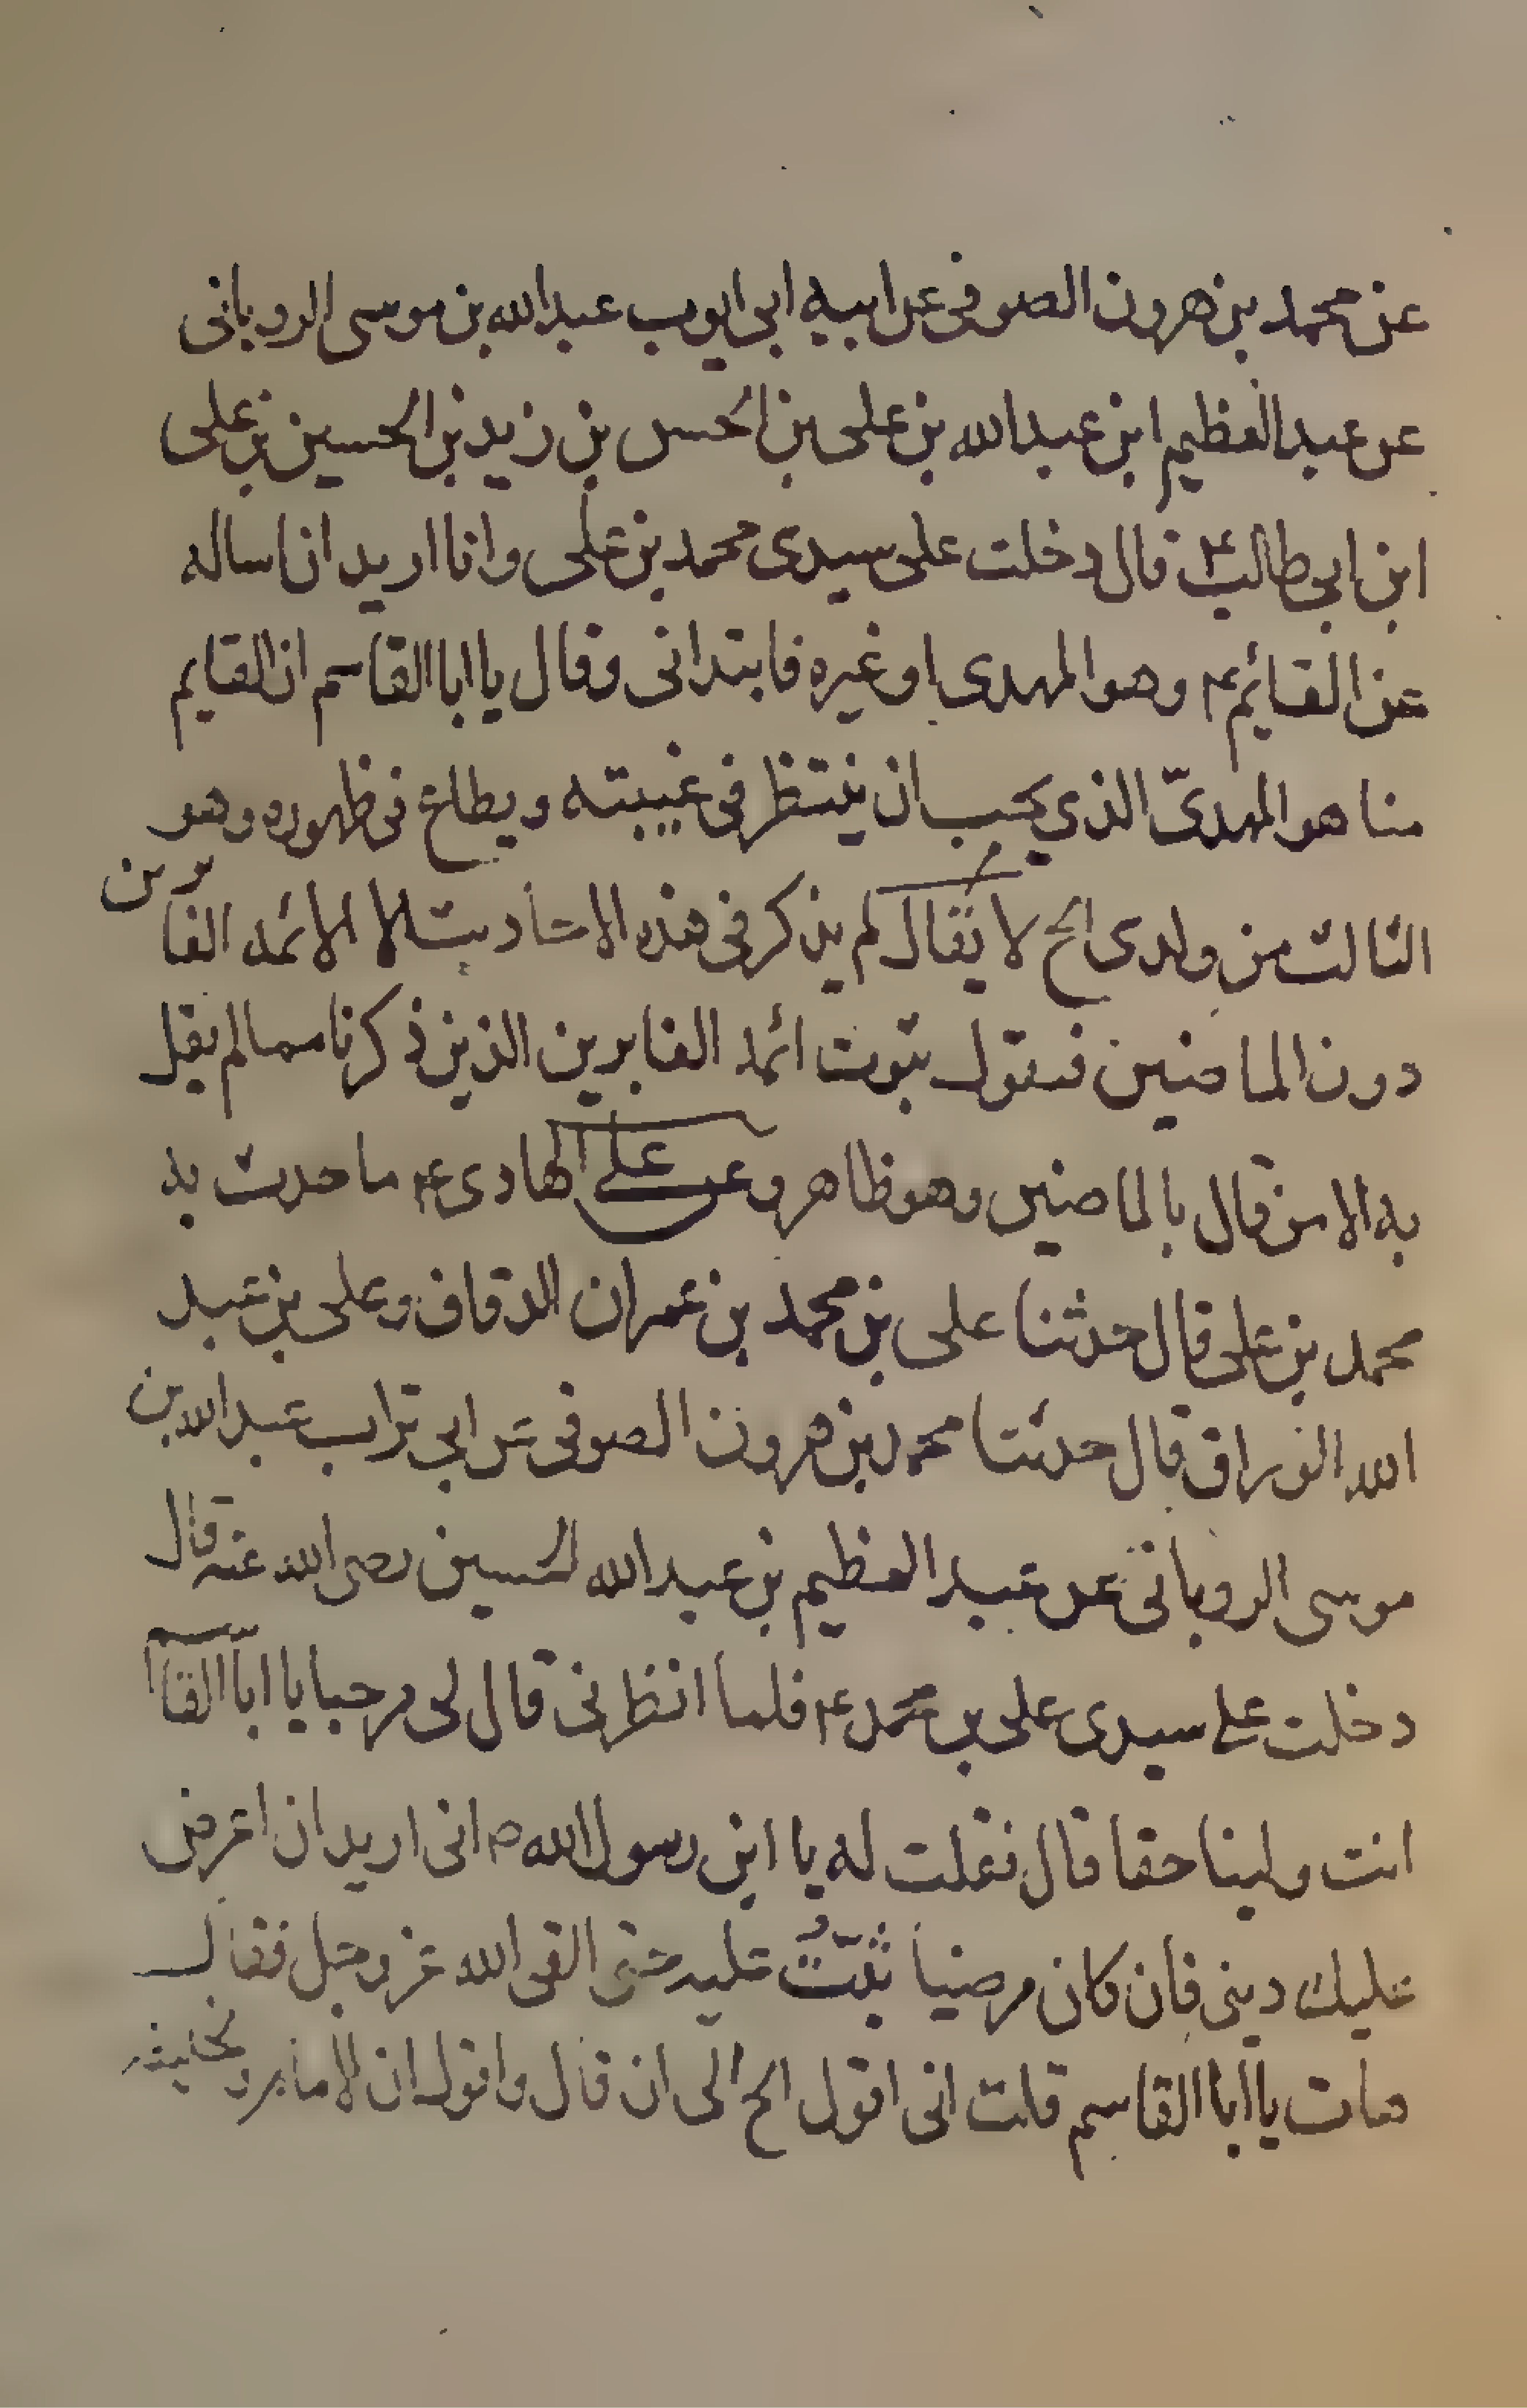 عن محمد بن هرون الصوفى عن ابيه ابى ايوب عبدالله بن موسى الروبانى
عن عبدالعظيم ابن عبدالله بن على بن الحسن بن زيد بن الحسين بن على
ابن ابى طالب ع قال دخلت على سيدى محمد بن على وانا اريد ان اساله
عن القائم ع وهو المهدى او غيره فابتدانى وقال يا ابا القاسم ان القايم
منا هو المهدىّ الذي يجب ان ينتظر فى غيبته ويطاع فى ظهوره وهو
الثالث من ولدى الخ لا يقال لم يذكر فى هذه الاحاديث الا الائمه الغابرين
دون الماضين فنقول ثبوت ائمه الغابرين الذين ذكرنا مما لم يقل
به الا من قال بالماضين وهو ظاهر وعن على الهادى ع ما حدث به
محمد بن على قال حدثنا على بن محمد بن عمران الدقاق وعلى بن عبد
الله الوراق قال حدثنا محمد بن هرون الصوفى عن ابى تراب عبدالله بن
موسى الروبانى عن عبد العظيم بن عبدالله الحسين رضى الله عنه قال
دخلت على سيدى على بن محمد ع فلما انظرنى قال لى مرحبا يا ابا القاسم
انت ولينا حقا قال فقلت له يا ابن رسول الله ص انى اريد ان اعرض
عليك دينى فان كان مرضيا ثبتّ عليه حتى القى الله عز وجل فقال
هات يا ابا القاسم قلت انى اقول الخ الى ان قال واقول ان الامام